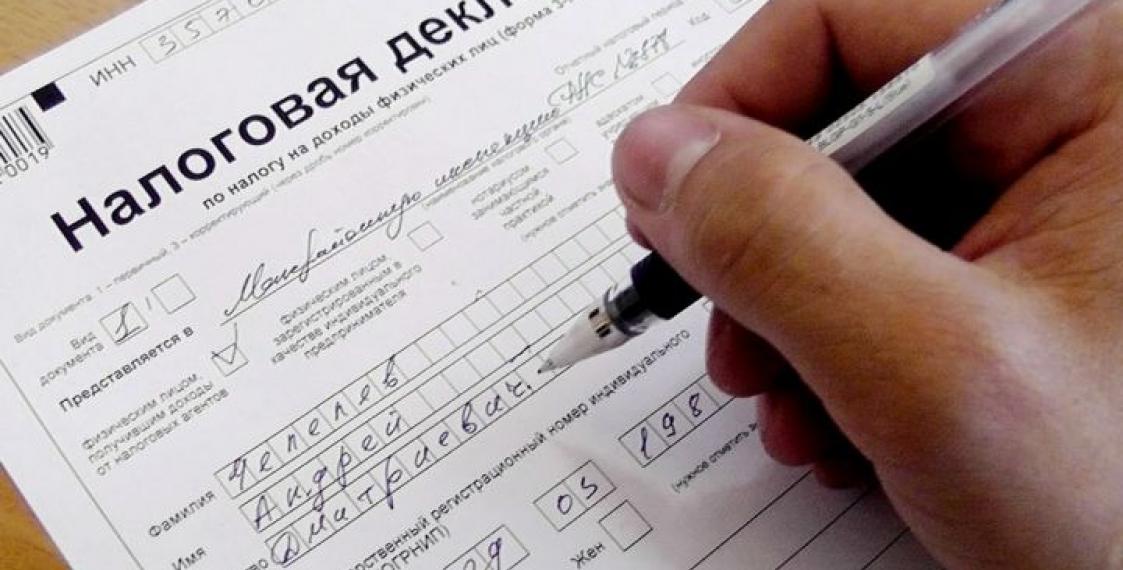 ИНН 3570
0019
Налоговая декл
по налогу на доходы физических лиц (форма 3-
Отчетный налоговый период
Код
Вид документа: 1 – первичный, 3 – корректирующий (через дробь номер корректировки)
Вид документа 1 /
Представляется в Межрайонную инспекцию
(наименование налогового органа)
физическим лицом,
получившим доходы
от налоговых агентов
физическим лицом,
зарегистрированным в
качестве индивидуального
предпринимателя
нотариусом
занимающимся
частной
практикой
адвокатом
(нужное отметить
Фамилия Чепелев
Имя Андрей
во Дмитриевич
рственный регистрационный номер индивидуального
ОГРНИП)
29 03 198
Жен
(нужное отметить